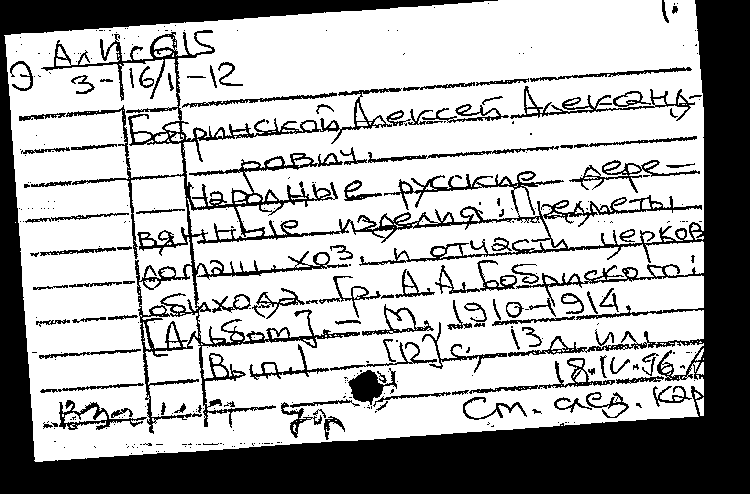 1.
АлИсб15
Э 3-16/1-12
Бобринской, Алексей Александ-
рович.
Народные русские дере-
вянные изделия: Предметы
домаш. хоз. и отчасти церков
обихода Гр. А.А. Бобринского:
[Альбом]. – М., 1910–1914.
Вып.1 [12] с, 13 л. ил.
18.IV.96.
См. след. кар